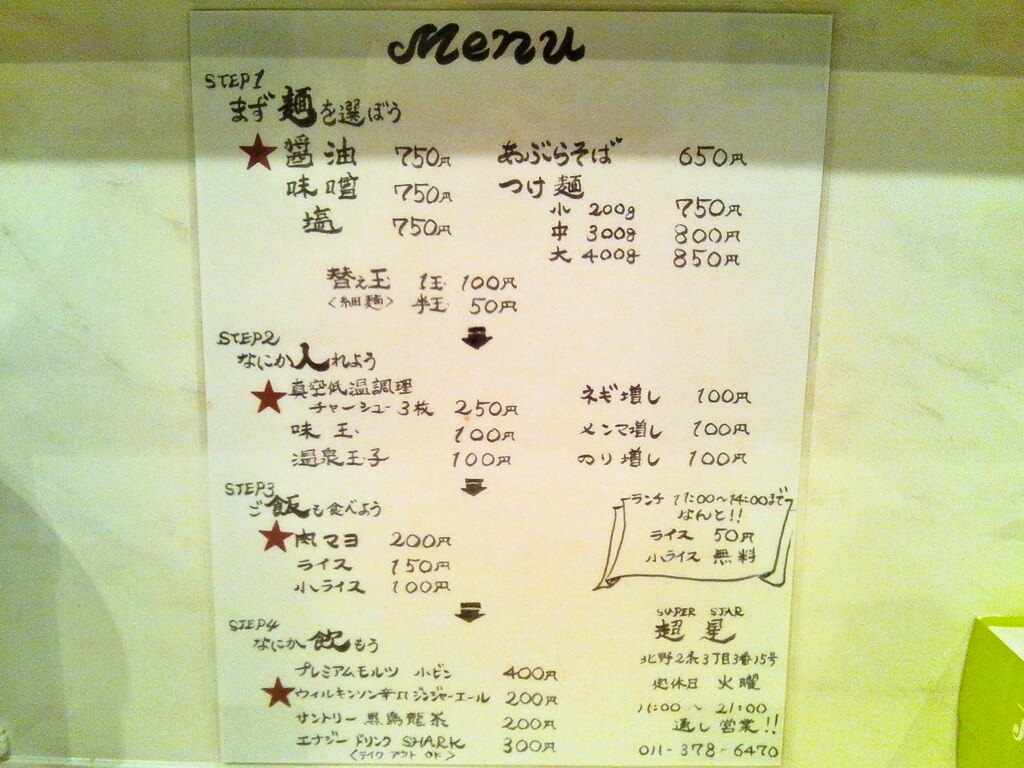 Menu
STEP1
まず麺を選ぼう
★醤油 750円
味噌 750円
塩 750円
あぶらそば 650円
つけ麺
小 200g 750円
中 300g 800円
大 400g 850円
替え玉 1玉 100円
<細麺> 半玉 50円
STEP2
なにか入れよう
★真空低温調理
チャーシュー3枚 250円
味玉 100円
温泉玉子 100円
ネギ増し 100円
メンマ増し 100円
のり増し 100円
STEP3
ご飯も食べよう
★肉マヨ 200円
ライス 150円
小ライス 100円
ランチ 11:00~14:00まで
なんと!!
ライス 50円
小ライス 無料
STEP4
なにか飲もう
プレミアムモルツ 小ビン 400円
★ウィルキンソン辛口ジンジャーエール 200円
サントリー黒烏龍茶 200円
エナジードリンク SHARK 300円
<テイクアウトOK>
SUPER STAR
超星
北野2条3丁目3番15号
定休日 火曜
11:00~21:00
通し営業!!
011-378-6470